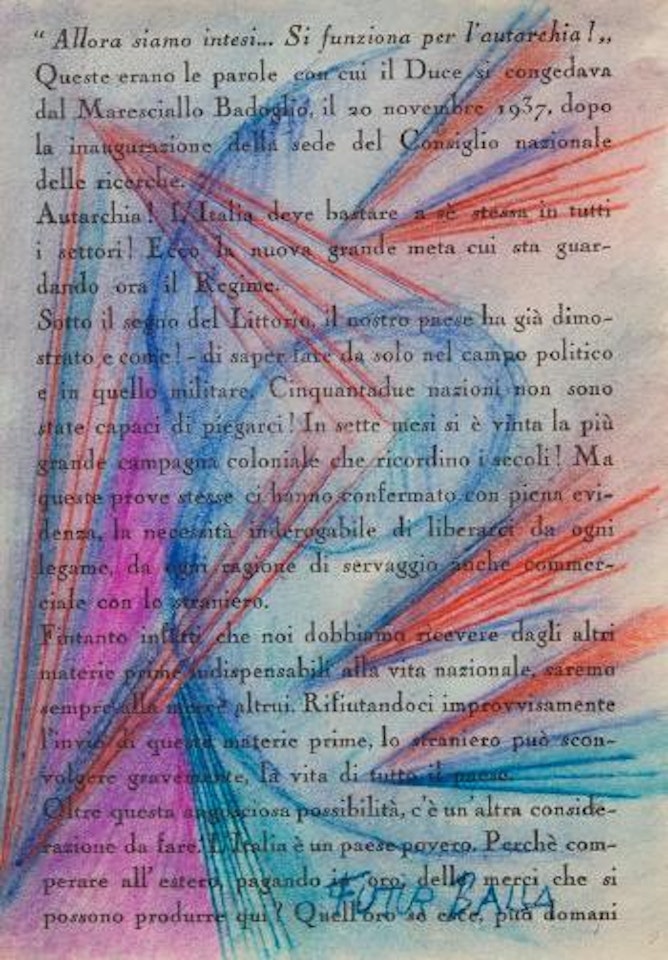 “ Allora siamo intesi... Si funziona per l'autarchia! „
Queste erano le parole con cui il Duce si congedava
dal Maresciallo Badoglio, il 20 novembre 1937, dopo
la inaugurazione della sede del Consiglio nazionale
delle ricerche.
Autarchia! L'Italia deve bastare a sè stessa in tutti
i settori! Ecco la nuova grande meta cui sta guar-
dando ora il Regime.
Sotto il segno del Littorio, il nostro paese ha già dimo-
strato e come! - di saper fare da solo nel campo politico
e in quello militare. Cinquantadue nazioni non sono
state capaci di piegarci! In sette mesi si è vinta la più
grande campagna coloniale che ricordino i secoli! Ma
queste prove stesse ci hanno confermato con piena evi-
denza, la necessità inderogabile di liberarci da ogni
legame, da ogni ragione di servaggio anche commer-
ciale con lo straniero.
Fintanto infatti che noi dobbiamo ricevere dagli altri
materie prime indispensabili alla vita nazionale, saremo
sempre alla mercè altrui. Rifiutandoci improvvisamente
l'invio di queste materie prime, lo straniero può scon-
volgere gravemente, la vita di tutto il paese.
Oltre questa angosciosa possibilità, c'è un'altra conside-
razione da fare. L'Italia è un paese povero. Perchè com-
perare all'estero, pagando in oro, delle merci che si
possono produrre qui? Quell'oro se esce, può domani
FUTUR BALLA